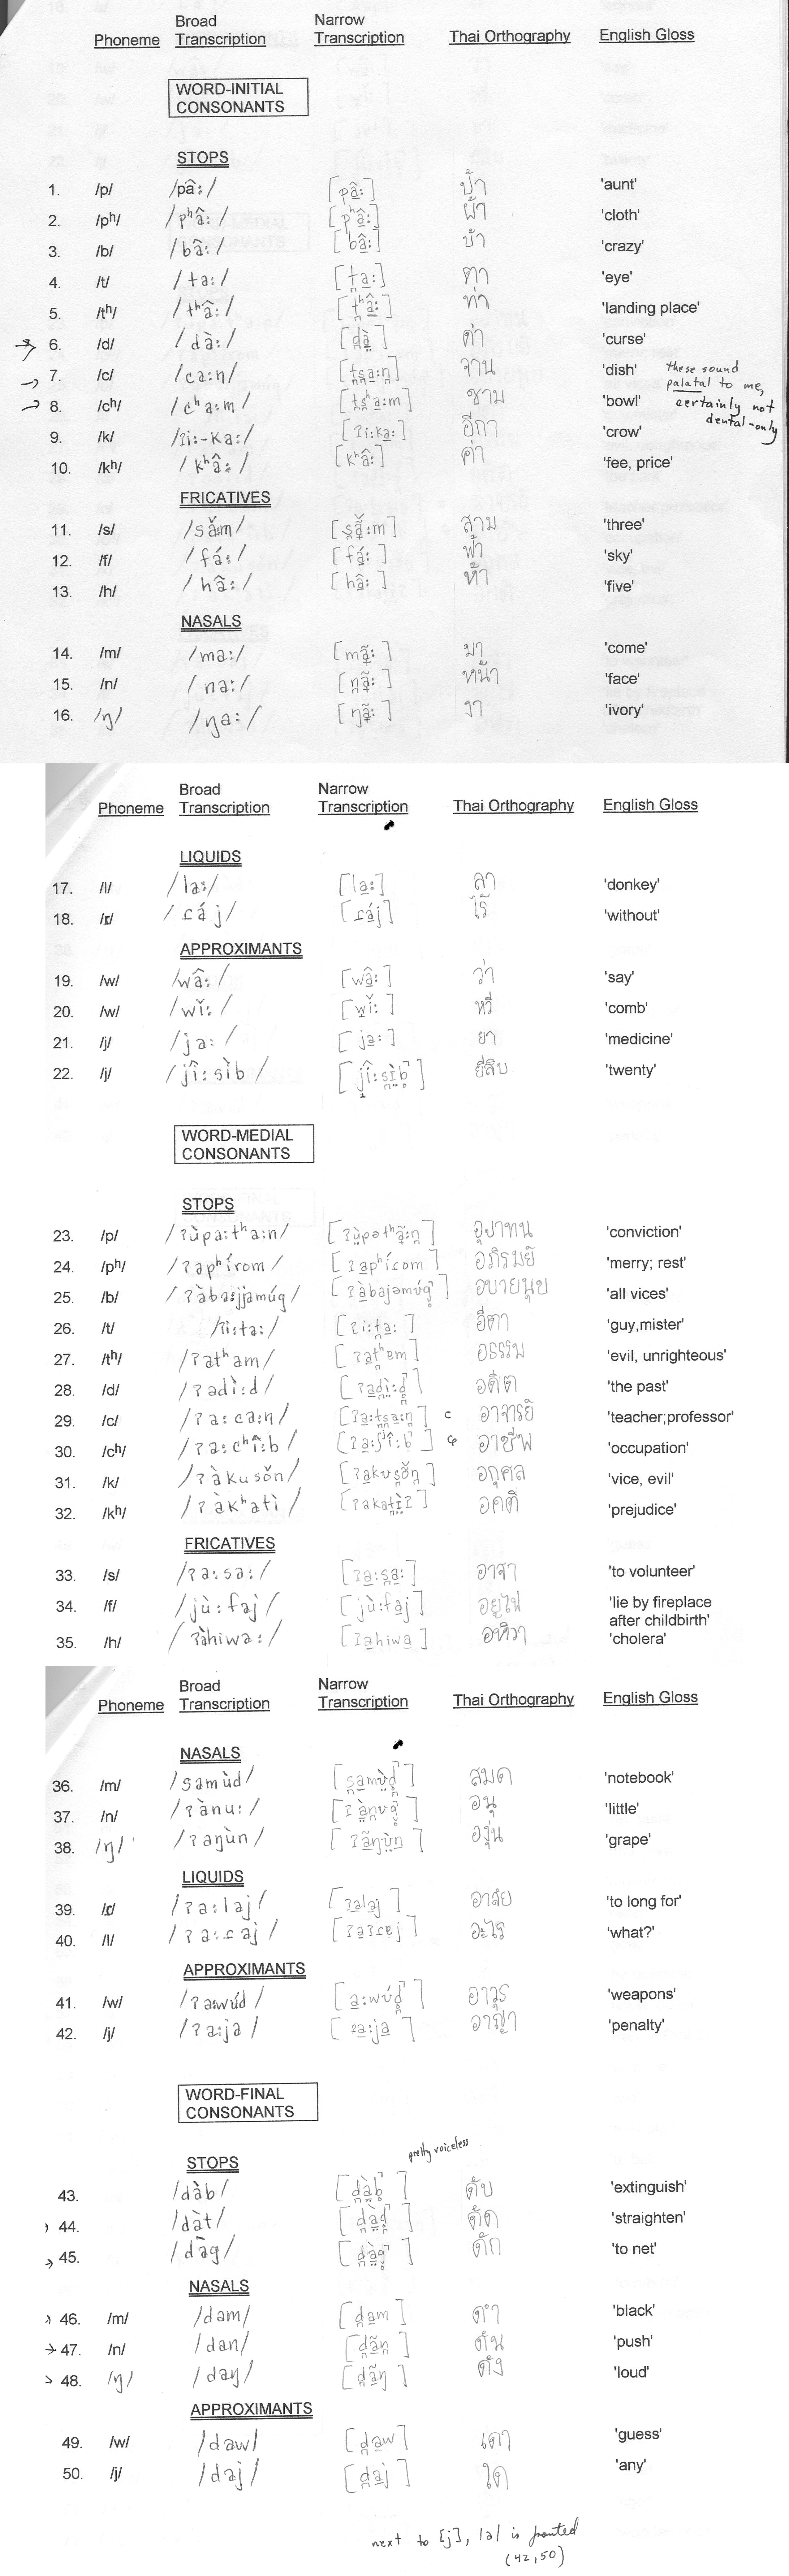 Phoneme Broad Transcription Narrow Transcription Thai Orthography English Gloss
WORD-INITIAL
CONSONANTS
STOPS
1. /p/ /pâː/ [pâ̠ː] ป้า 'aunt'
2. /pʰ/ /pʰâː/ [pʰâ̠ː] ผ้า 'cloth'
3. /b/ /bâː/ [bâ̠ː] บ้า 'crazy'
4. /t/ /taː/ [t̪a̠ː] ตา 'eye'
5. /tʰ/ /tʰâː/ [t̪ʰâ̠ː] ท่า 'landing place'
→ 6. /d/ /dàː/ [d̪à̤] ด่า 'curse'
→ 7. /c/ /caːn/ [t̪s̪a̠ːn̪] จาน 'dish' these sound
→ 8. /cʰ/ /cʰaːm/ [t̪s̪ʰa̠ːm] ชาม 'bowl' palatal to me,
certainly not
dental-only
9. /k/ /ʔiː-kaː/ [ʔiːka̠ː] อีกา 'crow'
10. /kʰ/ /kʰâː/ [kʰâ̠ː] ค่า 'fee, price'
FRICATIVES
11. /s/ /sǎːm/ [s̪ǎ̠ːm] สาม 'three'
12. /f/ /fáː/ [fá̠ː] ฟ้า 'sky'
13. /h/ /hâː/ [hâ̠ː] ห้า 'five'
NASALS
14. /m/ /maː/ [mã̠ː] มา 'come'
15. /n/ /naː/ [n̪ã̠ː] หน้า 'face'
16. /ŋ/ /ŋaː/ [ŋã̠ː] งา 'ivory'
Phoneme Broad Transcription Narrow Transcription Thai Orthography English Gloss
LIQUIDS
17. /l/ /laː/ [la̠ː] ลา 'donkey'
18. /ɾ/ /ɾáj/ [ɾá̠j] ไร้ 'without'
APPROXIMANTS
19. /w/ /wâː/ [wâ̠ː] ว่า 'say'
20. /w/ /wǐː/ [wǐː] หวี 'comb'
21. /j/ /jaː/ [ja̠ː] ยา 'medicine'
22. /j/ /jîːsìb/ [jîːs̪ì̤b̥̚] ยี่สิบ 'twenty'
WORD-MEDIAL
CONSONANTS
STOPS
23. /p/ /ʔùpaːtʰaːn/ [ʔṳ̀pətʰã̠ːn̪] อุปาทน 'conviction'
24. /pʰ/ /ʔapʰírom/ [ʔa̠pʰíɾom] อภิรมย์ 'merry; rest'
25. /b/ /ʔàbaːjjamúg/ [ʔà̠bajəmúg̥̚] อบายมุข 'all vices'
26. /t/ /ʔiːtaː/ [ʔiːt̪a̠ː] อีตา 'guy,mister'
27. /tʰ/ /ʔatʰam/ [ʔa̠t̪ʰɐm] อธรรม 'evil, unrighteous'
28. /d/ /ʔadìːd/ [ʔa̠d̪ì̤ːd̥̚] อดีต 'the past'
29. /c/ /ʔaːcaːn/ [ʔa̠ːt̪s̪a̠ːn̪] c อาจารย์ 'teacher;professor'
30. /cʰ/ /ʔaːcʰîːb/ [ʔa̠ːʃîːb̥̚] อาชีพ 'occupation'
31. /k/ /ʔàkusǒn/ [ʔa̠kus̪ǒn̪] อกุศล 'vice, evil'
32. /kʰ/ /ʔàkʰatì/ [ʔa̠kat̪ì̤ʔ] อคติ 'prejudice'
FRICATIVES
33. /s/ /ʔaːsaː/ [ʔa̠ːs̪a̠ː] อาสา 'to volunteer'
34. /f/ /jùːfaj/ [jùːfa̠j] อยู่ไฟ 'lie by fireplace
after childbirth'
35. /h/ /ʔàhiwaː/ [ʔa̠hiwa̠] อหิวา 'cholera'
Phoneme Broad Transcription Narrow Transcription Thai Orthography English Gloss
NASALS
36. /m/ /samùd/ [s̪a̠mṳ̀d̥̚] สมุด 'notebook'
37. /n/ /ʔànuː/ [ʔà̠n̪ʊg̚] อนุ 'little'
38. /ŋ/ /ʔaŋùn/ [ʔã̠ŋṳ̀n̪] องุ่น 'grape'
LIQUIDS
39. /ɾ/ /ʔaːlaj/ [ʔa̠la̠j] อาลัย 'to long for'
40. /l/ /ʔaːɾaj/ [ʔa̠ʔɾɐj] อะไร 'what?'
APPROXIMANTS
41. /w/ /ʔaːwúd/ [a̠ːwúd̥̚] อาวุธ 'weapons'
42. /j/ /ʔaːja/ [ʔa̠ːja̠] อาญา 'penalty'
WORD-FINAL
CONSONANTS
pretty voiceless
STOPS
43. /dàb/ [d̪à̤b̥̚] ดับ 'extinguish'
44. /dàt/ [d̪à̤d̥̚] ดัด 'straighten'
→ 45. /dàg/ [d̪à̤g̥̚] ดัก 'to net'
NASALS
46. /m/ /dam/ [d̪a̠m] ดำ 'black'
→ 47. /n/ /dan/ [d̪ã̠n̪] ดัน 'push'
48. /ŋ/ /daŋ/ [d̪ã̠ŋ] ดัง 'loud'
APPROXIMANTS
49. /w/ /daw/ [d̪a̠w] เดา 'guess'
50. /j/ /daj/ [d̪a̠j] ใด 'any'
next to [j], /a/ is fronted
(42,50)